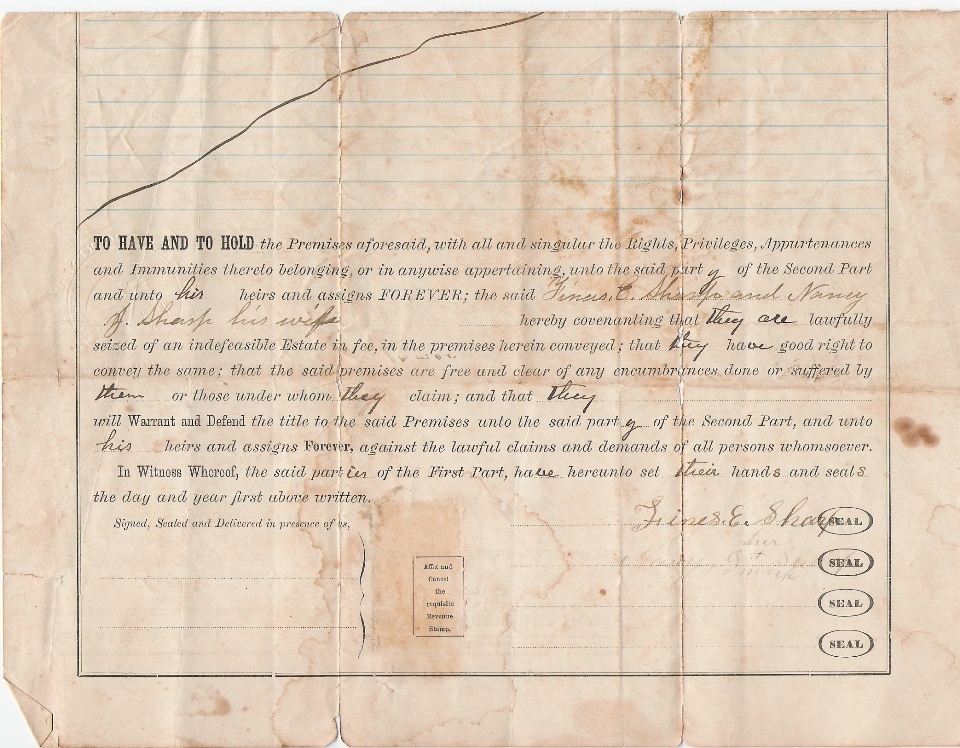 TO HAVE AND TO HOLD the Premises aforesaid, with all and singular the Rights, Privileges, Appurtenances
and Immunities thereto belonging, or in anywise appertaining, unto the said party of the Second Part
and unto his heirs and assigns FOREVER; the said Fines. E. Sharp and Nancy
J. Sharp his wife hereby covenanting that they are lawfully
seized of an indefeasible Estate in fee, in the premises herein conveyed; that they have good right to
convey the same; that the said premises are free and clear of any encumbrances done or suffered by
them or those under whom they claim; and that they
will Warrant and Defend the title to the said Premises unto the said party of the Second Part, and unto
his heirs and assigns Forever, against the lawful claims and demands of all persons whomsoever.
In Witness Whereof, the said parties of the First Part, have hereunto set their hands and seals
the day and year first above written.
Signed, Sealed and Delivered in presence of us,
Fines. E. Sharp SEAL
her
SEAL
mark
Affix and
Cancel
the
requisite
Revenue
Stamp.
SEAL
SEAL